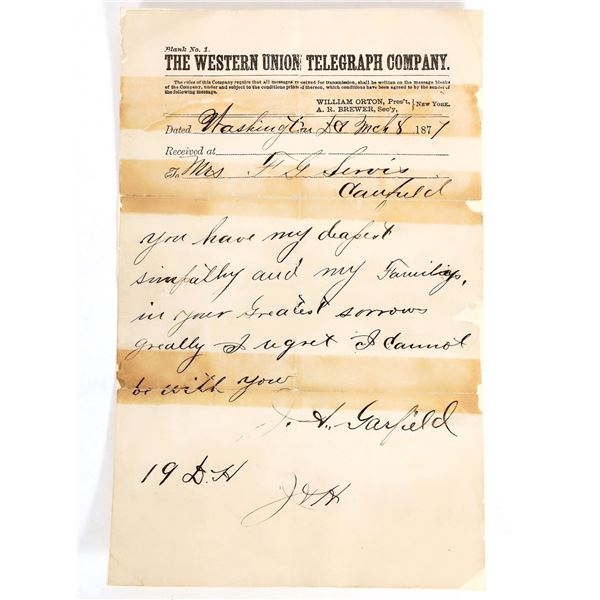 Blank No. 1.
THE WESTERN UNION TELEGRAPH COMPANY.
The rules of this Company require that all messages received for transmission, shall be written on the message blanks
of the Company, under and subject to the conditions printed thereon, which conditions have been agreed to by the sender of
the following message.
WILLIAM ORTON, Pres't,
A. R. BREWER, Sec'y,
NEW YORK.
Dated Washington Mch 8 1877
Received at
To Mrs F G Servis
Canfield
you have my deapest
simpathy and my Familiys,
in your Greatest sorrows
greatly I regret I cannot
be with you
J. A. Garfield
19 D.H